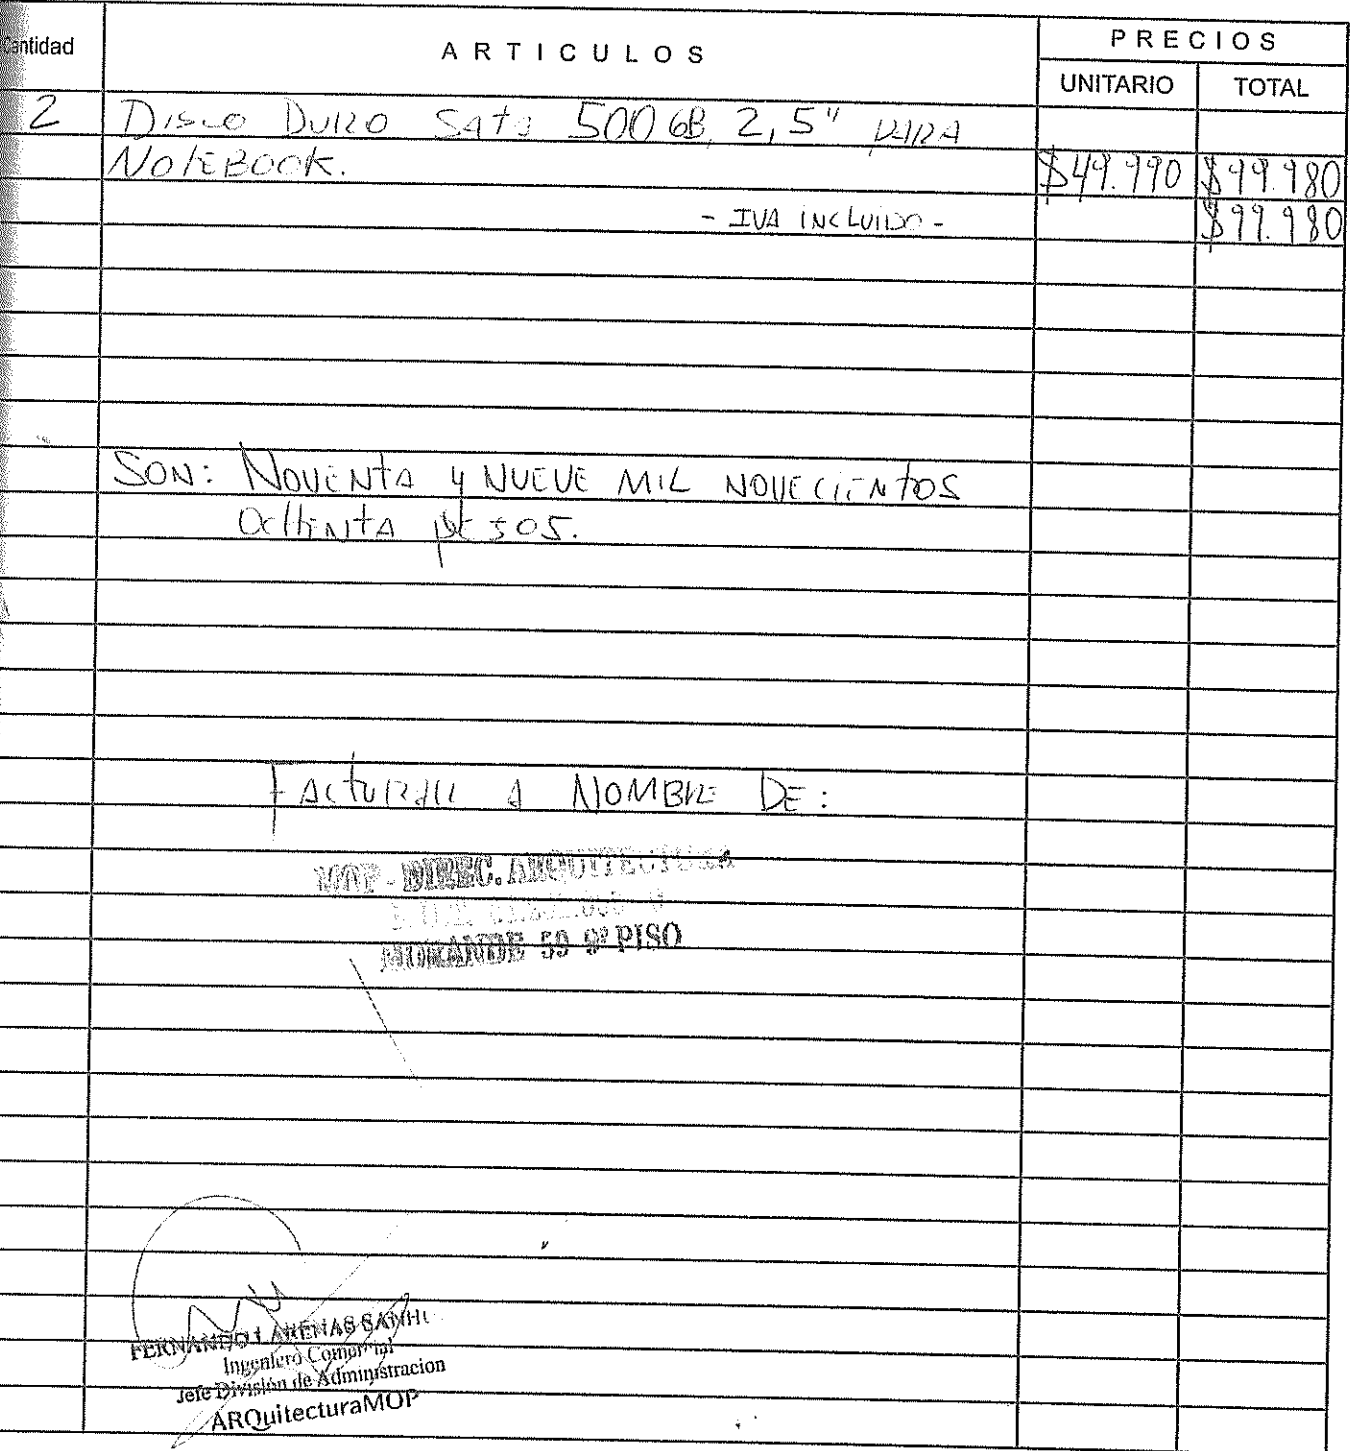 Cantidad
ARTICULOS
PRECIOS
UNITARIO TOTAL
2 Disco Duro Sata 500 GB, 2,5" para
Notebook. $49.990 $99.980
- IVA incluido - $99.980
SON: Noventa y nueve mil novecientos
ochenta pesos.
Facturar a nombre de:
MOP - DIREC. ARQUITECTURA
R.U.T.
MORANDE 59 9º PISO
FERNANDO LARENAS
Ingeniero Comercial
Jefe División de Administracion
ARQuitecturaMOP